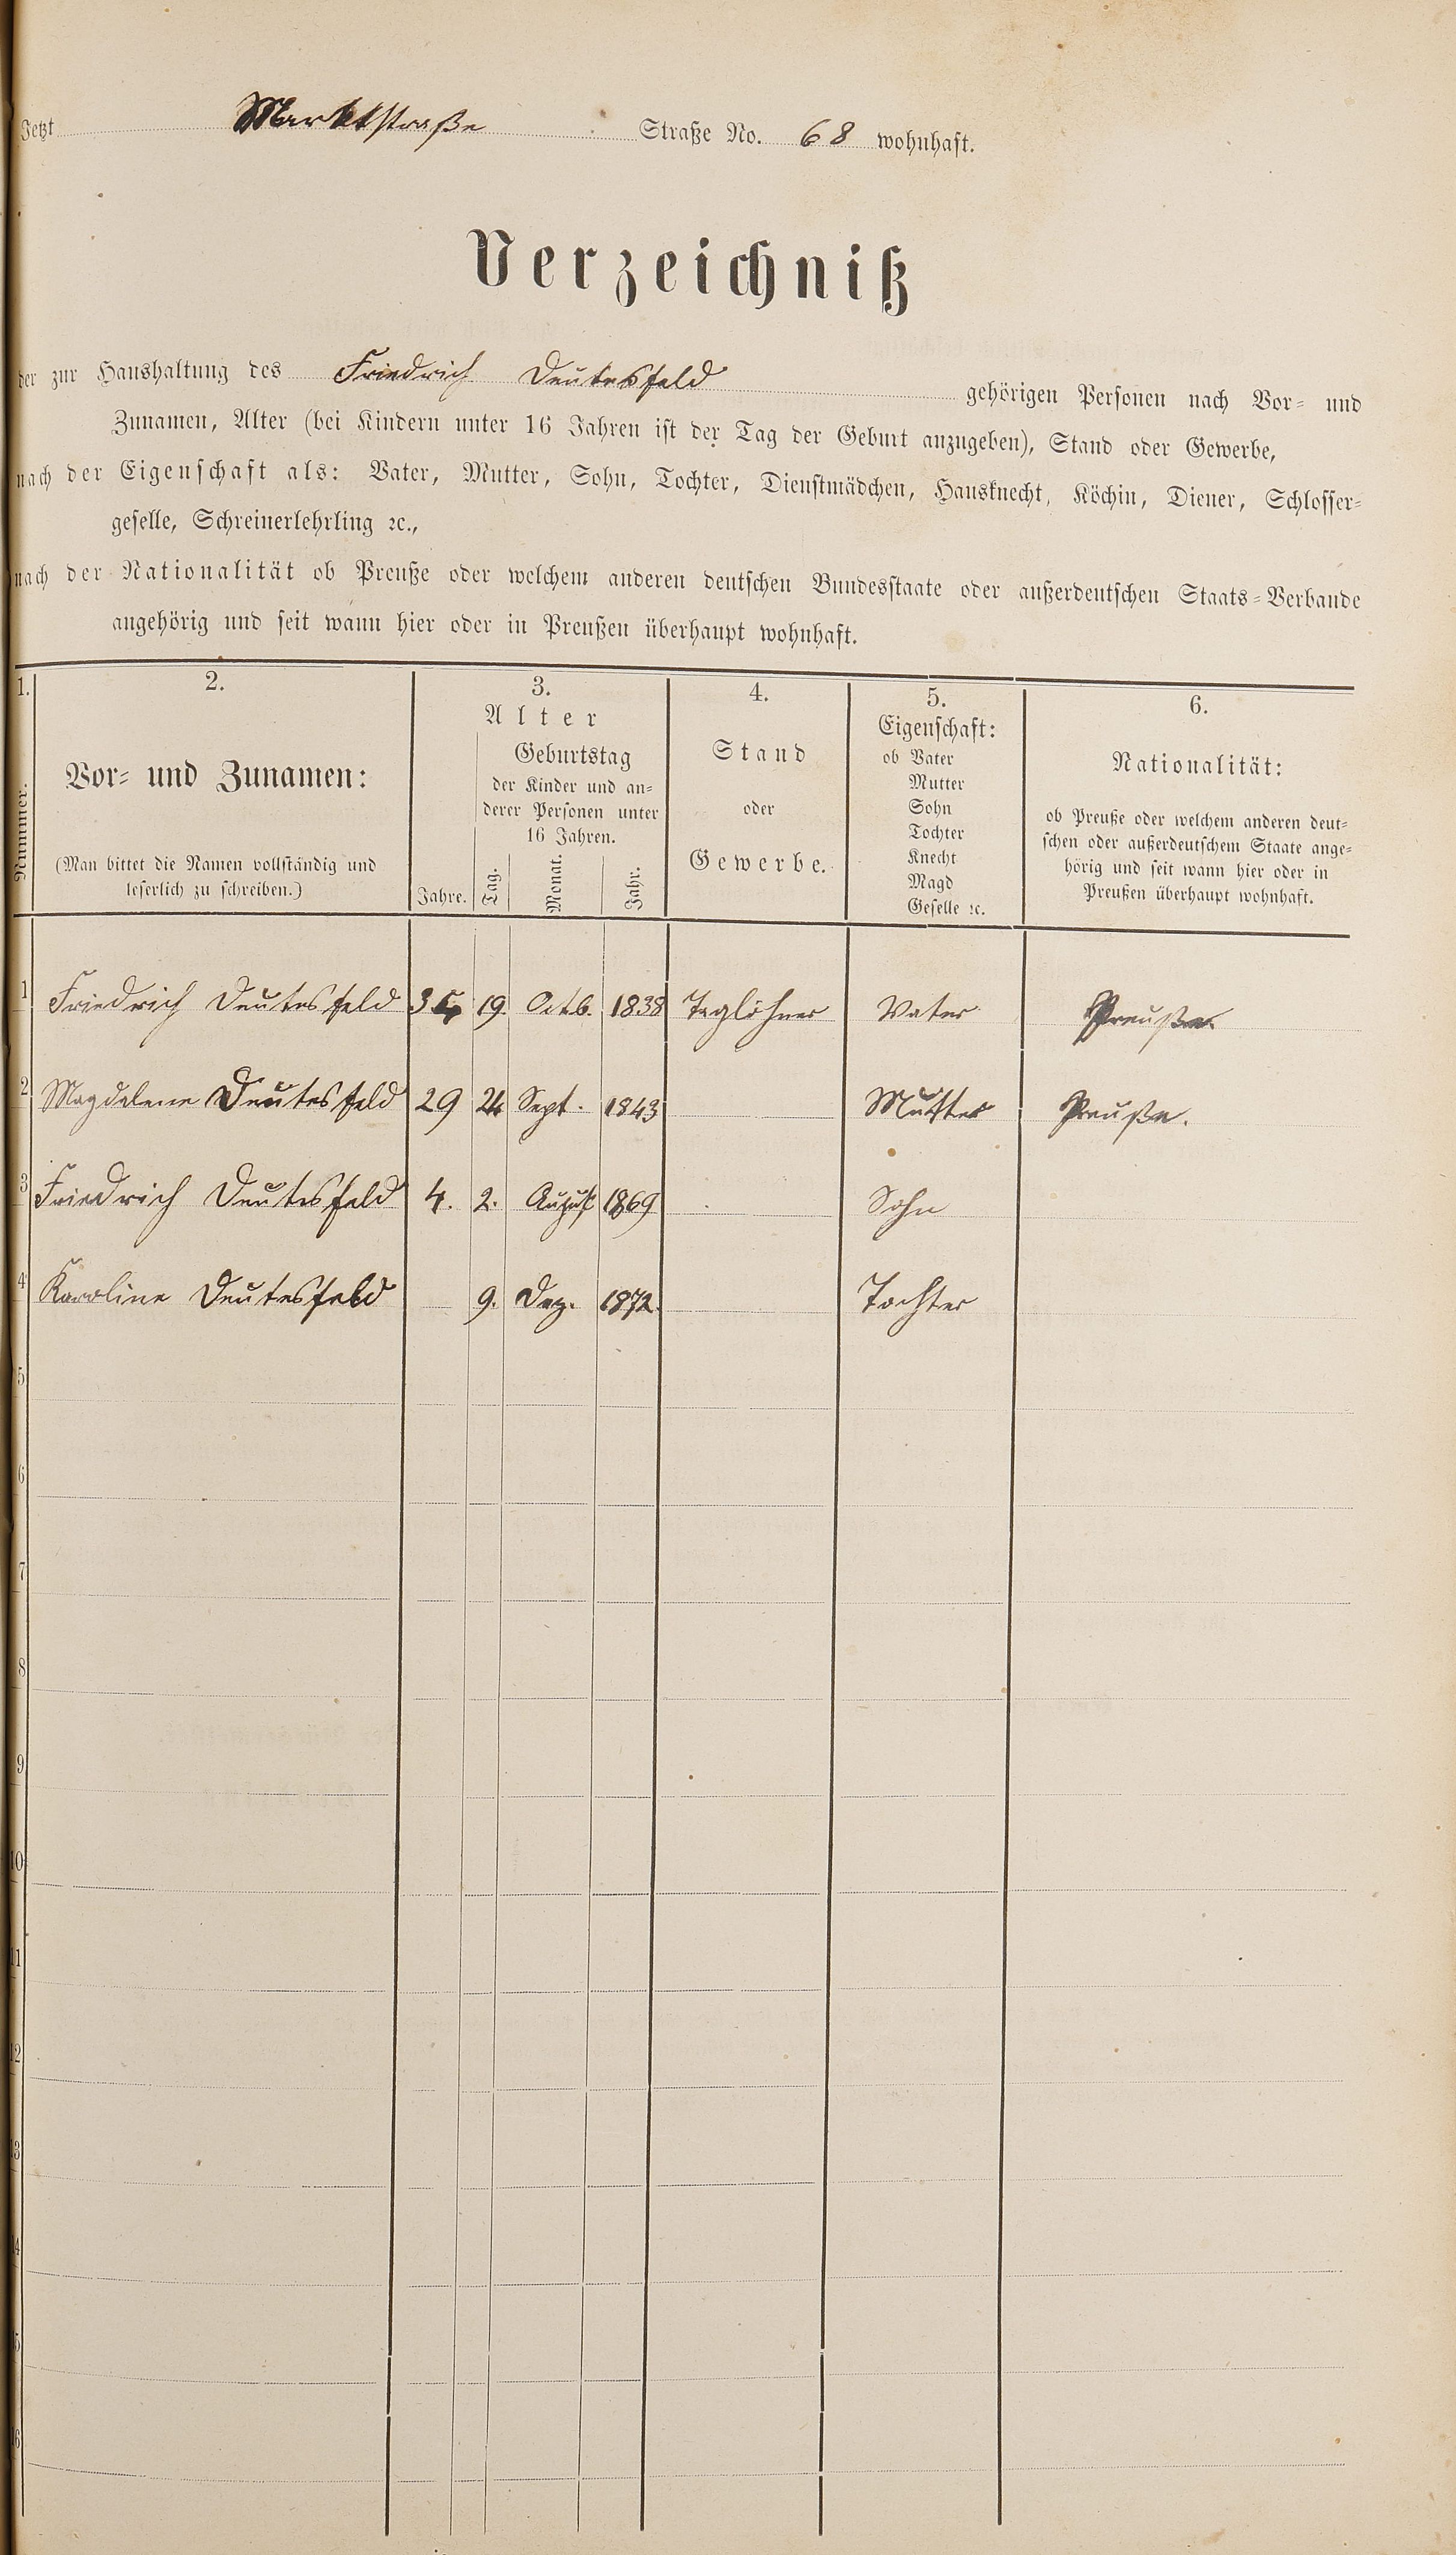 Jetzt Marktstraße Straße No. 68 wohnhaft.
Verzeichniß
der zur Haushaltung des Friedrich Deutesfeld gehörigen Personen nach Vor- und
Zunamen, Alter (bei Kindern unter 16 Jahren ist der Tag der Geburt anzugeben), Stand oder Gewerbe,
nach der Eigenschaft als: Vater, Mutter, Sohn, Tochter, Dienstmädchen, Hausknecht, Köchin, Diener, Schlosser-
geselle, Schreinerlehrling ꝛc.,
nach der Nationalität ob Preuße oder welchem anderen deutschen Bundesstaate oder außerdeutschen Staats-Verbande
angehörig und seit wann hier oder in Preußen überhaupt wohnhaft.
1.
Nummer.
2.
Vor- und Zunamen:
(Man bittet die Namen vollständig und
leserlich zu schreiben.)
3.
Alter
Jahre.
Geburtstag
der Kinder und an-
derer Personen unter
16 Jahren.
Tag. Monat. Jahr.
4.
Stand
oder
Gewerbe.
5.
Eigenschaft:
ob Vater
Mutter
Sohn
Tochter
Knecht
Magd
Geselle ꝛc.
6.
Nationalität:
ob Preuße oder welchem anderen deut-
schen oder außerdeutschem Staate ange-
hörig und seit wann hier oder in
Preußen überhaupt wohnhaft.
1 Friedrich Deutesfeld 19. Octb. 1838 Taglöhner Vater Preuße
2 Magdalena Deutesfeld 29 24 Sept. 1843 Mutter Preuße.
3 Friedrich Deutesfeld 4. 2. August 1869 Sohn
4 Karoline Deutesfeld 9. Dez. 1872. Tochter
5
6
7
8
9
10
11
12
13
14
15
16